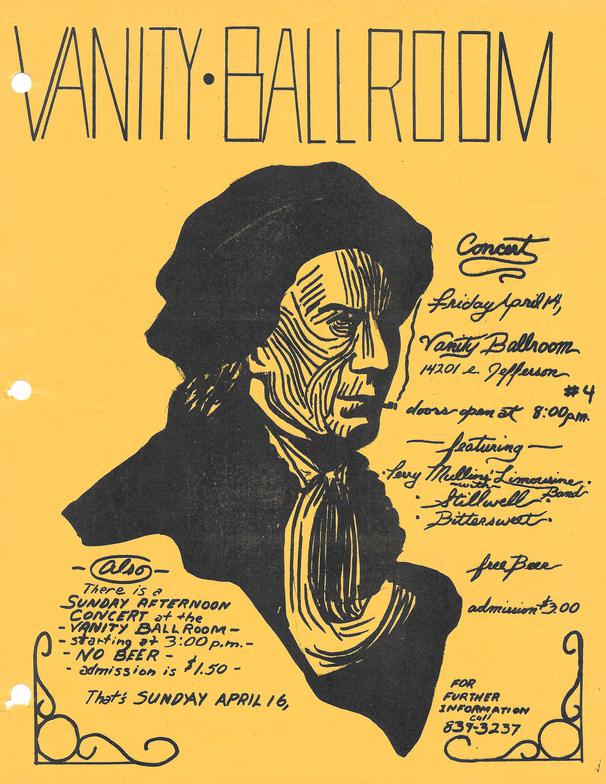 VANITY • BALLROOM
Concert
Friday April 14,
Vanity Ballroom
14201 e. Jefferson
#4
doors open at 8:00pm.
— featuring —
Mullins' Limousine
with Band
• Stillwell •
• Bittersweet •
free Beer
admission $3.00
- Also -
There is a
SUNDAY AFTERNOON
CONCERT at the
- VANITY BALLROOM -
- starting at 3:00 p.m. -
- NO BEER -
- admission is $1.50 -
That's SUNDAY APRIL 16,
FOR
FURTHER
INFORMATION
call
839-3237